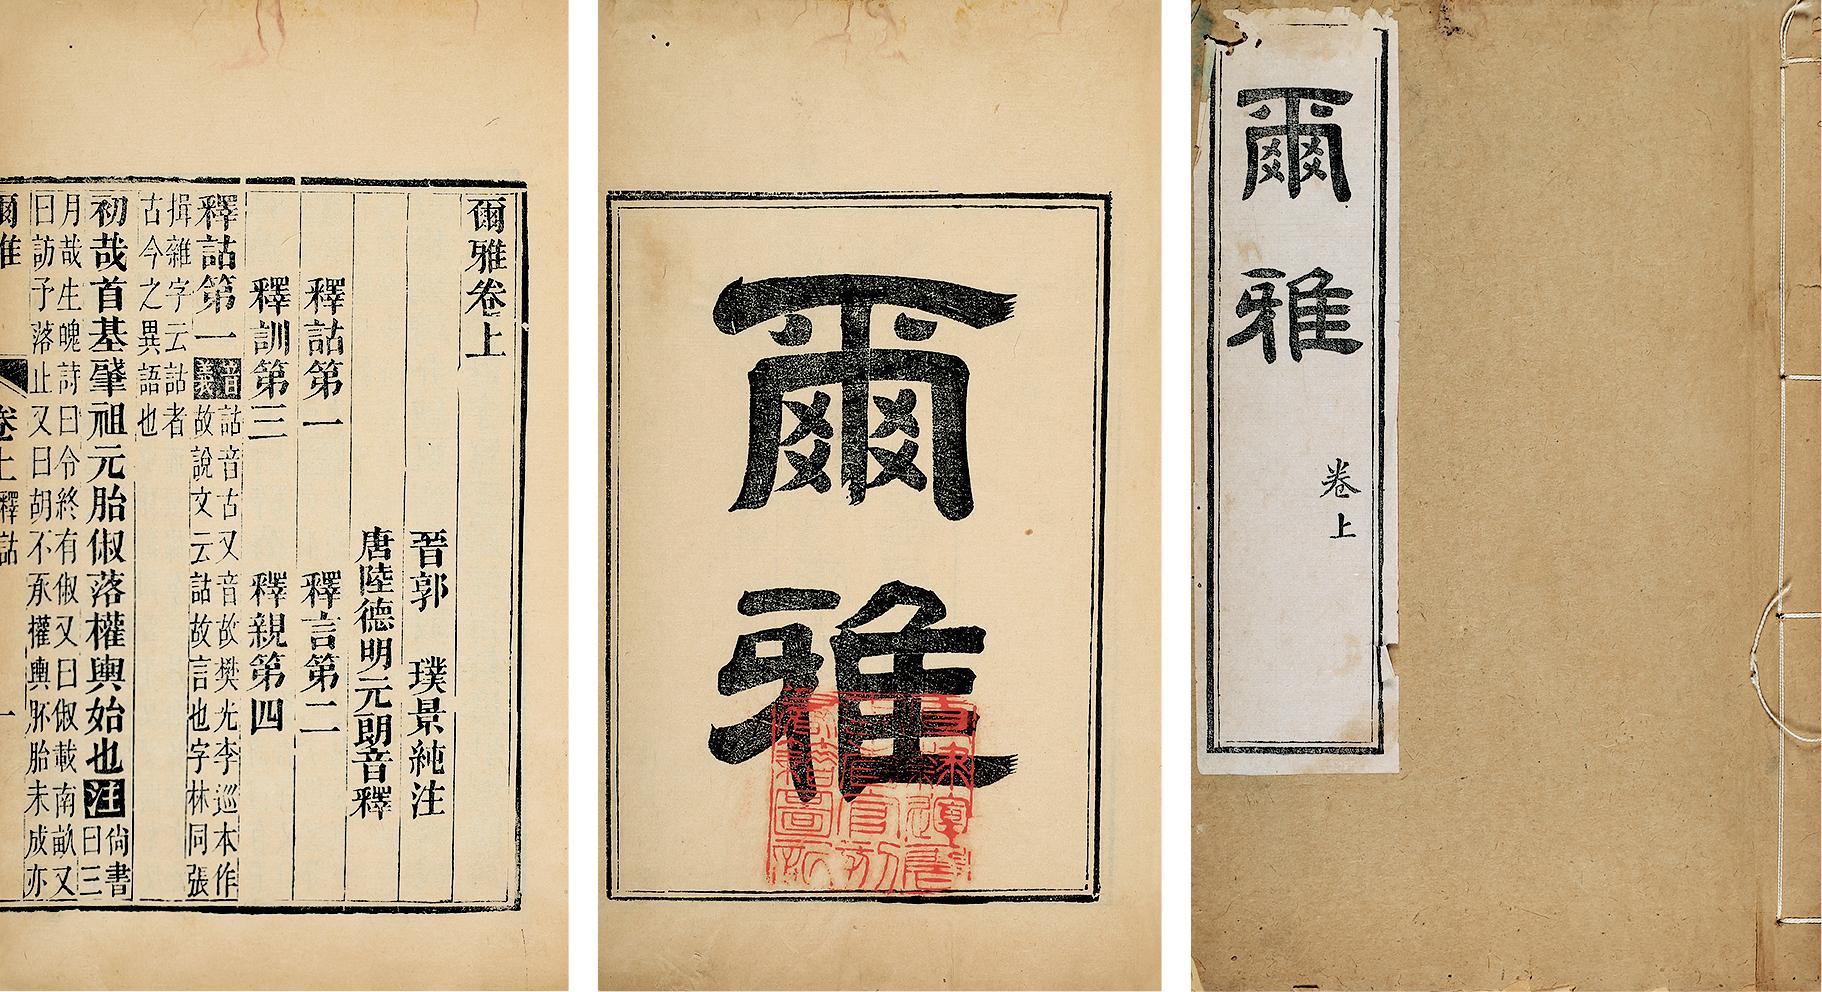 爾雅
卷上
爾雅
直隸運售
各省官刻
書籍圖記
爾雅卷上
晉郭 璞景純注
唐陸德明元朗音釋
釋詁第一 釋言第二
釋訓第三 釋親第四
釋詁第一 音義 詁音古又音故樊光李巡本作
故說文云詁故言也字林同張
揖雜字云詁者
古今之異語也
初哉首基肇祖元胎俶落權輿始也 注 尚書
曰三
月哉生魄詩曰令終有俶又曰俶載南畝又
曰訪予落止又曰胡不承權輿胚胎未成亦
爾雅 卷上 釋詁 一